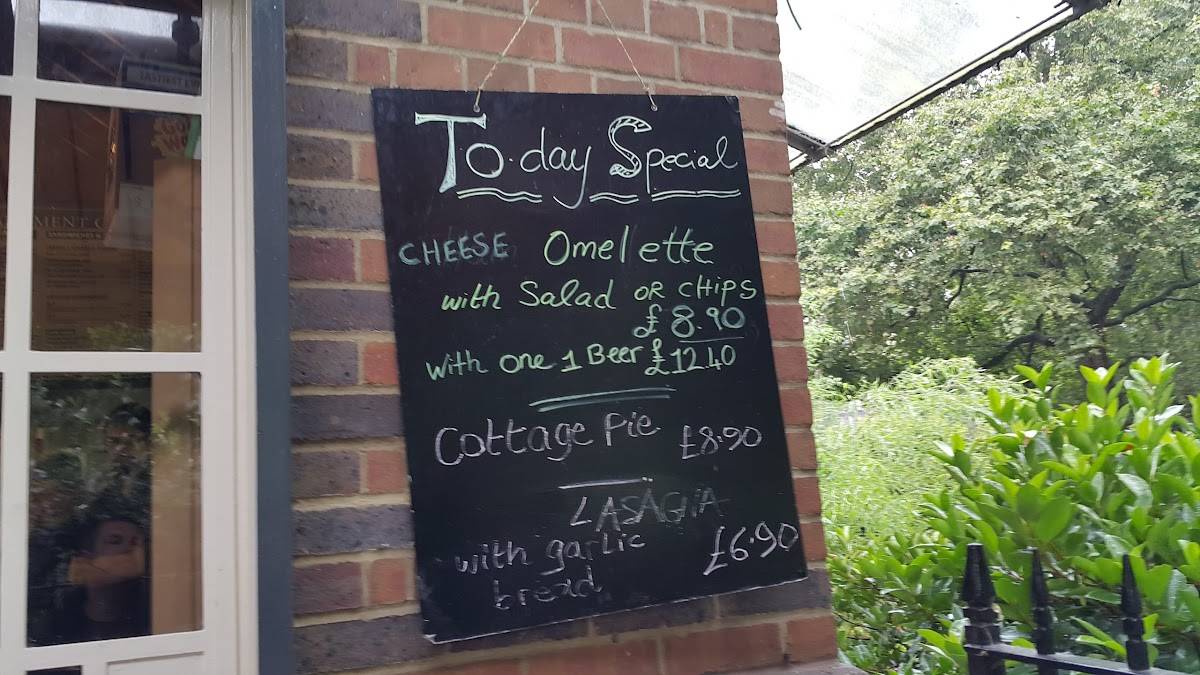 To.day Special
CHEESE Omelette
with Salad OR CHIPS
£8.90
with one 1 Beer £12.40
Cottage Pie £8.90
LASAGIA
with garlic £6.90
bread